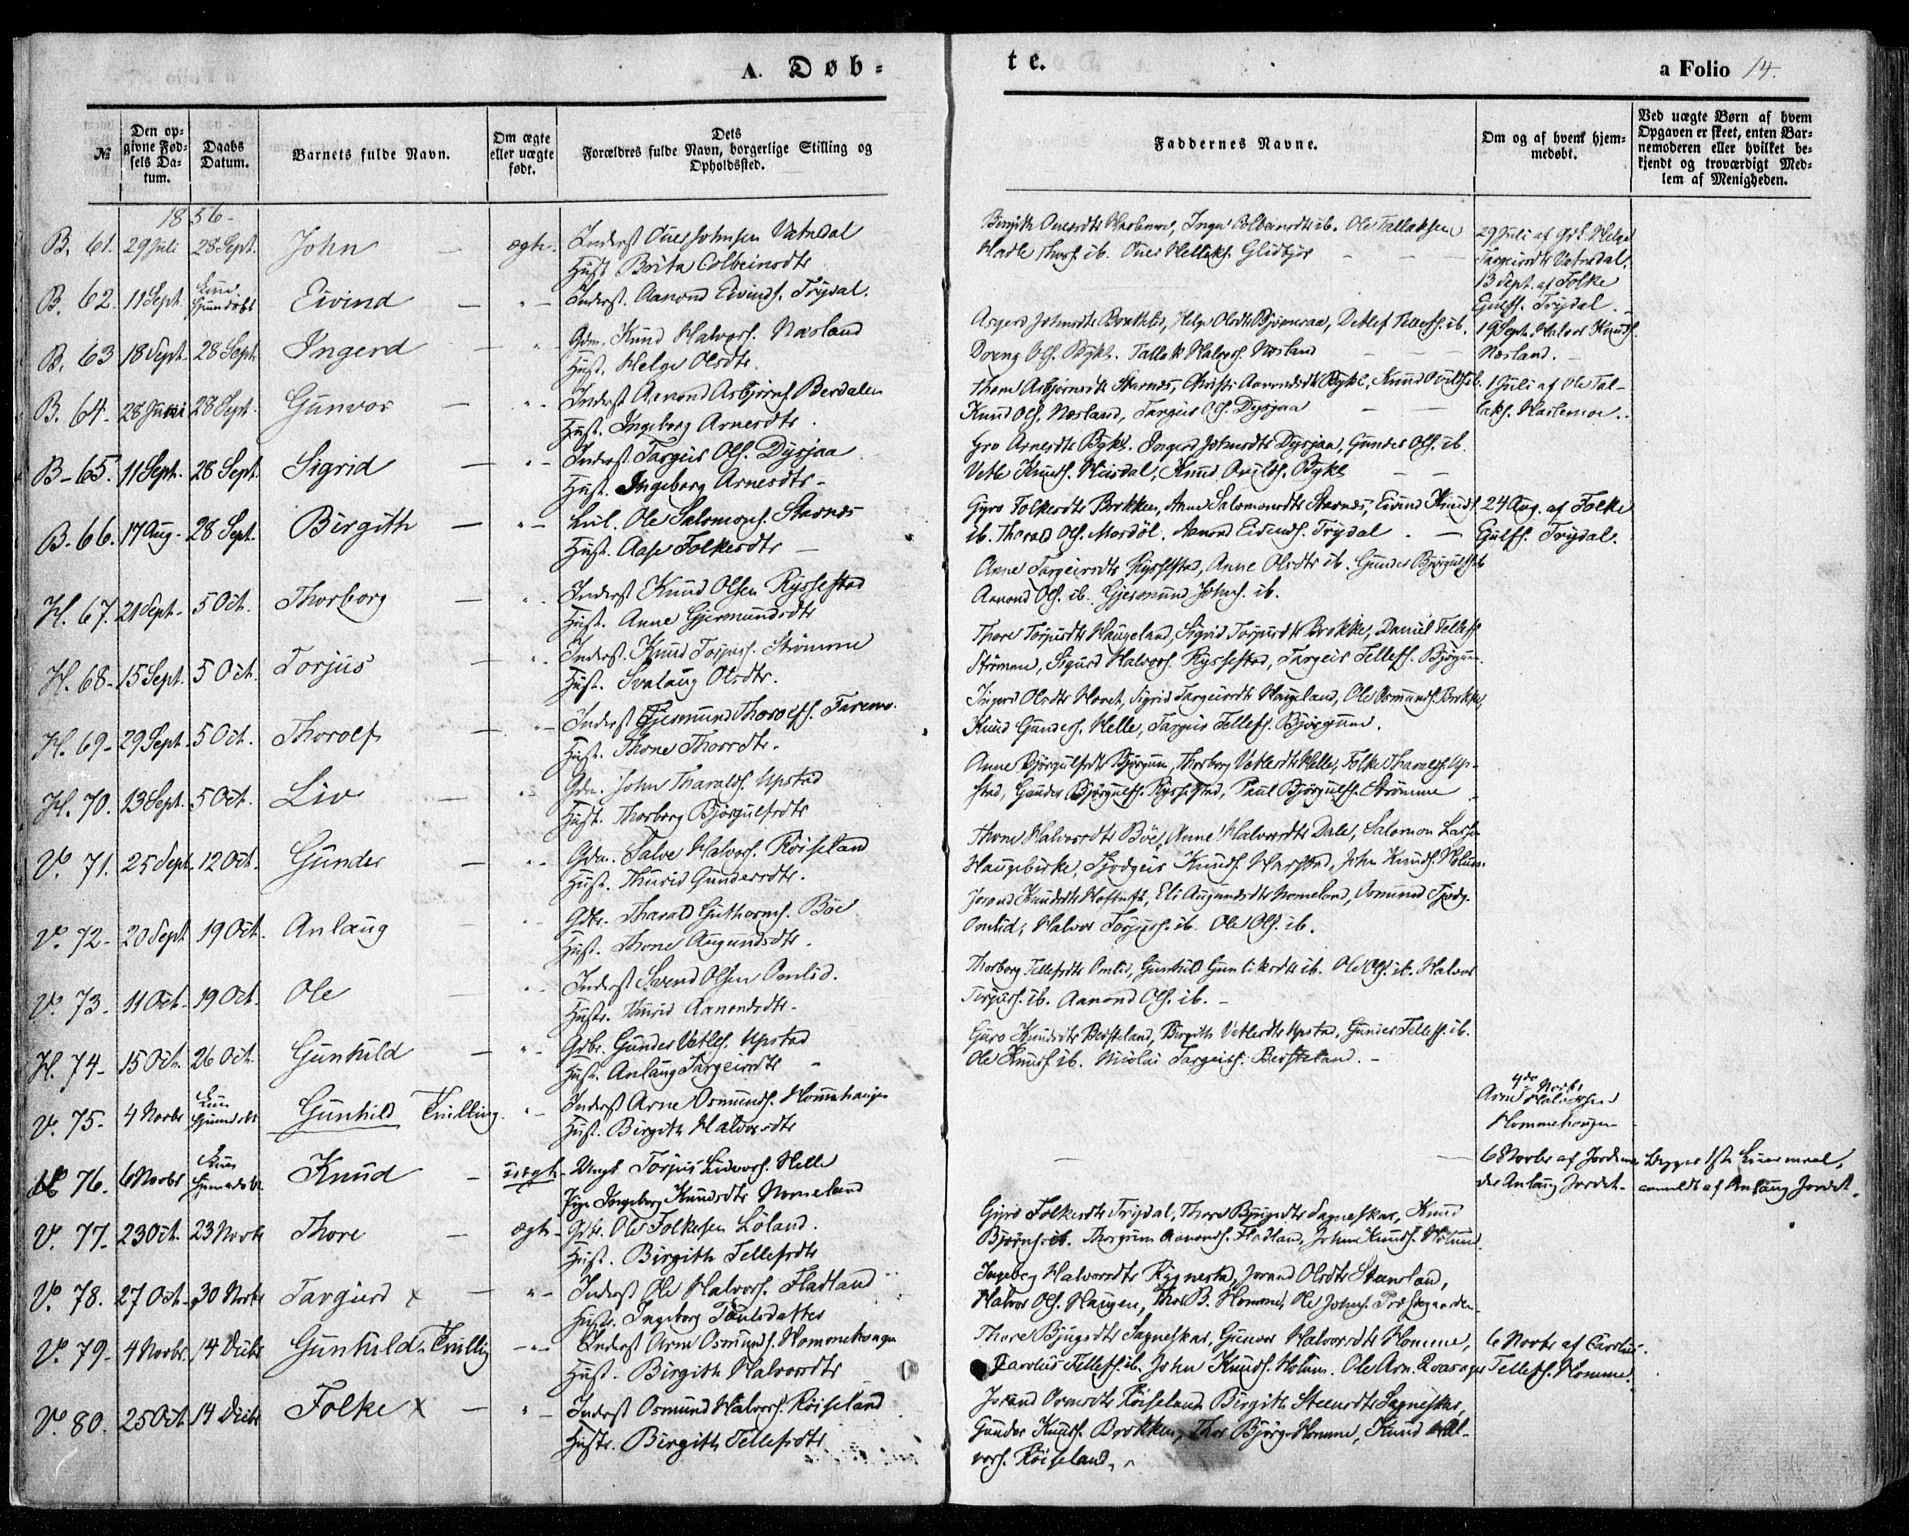 A. Døb=
te.
a Folio 14.
№
Den op=
givne Fød=
sels Da=
tum.
Daabs
Datum.
Barnets fulde Navn.
Om ægte
eller uægte
født.
Dets
Forældres fulde Navn, borgerlige Stilling og
Opholdssted.
Faddernes Navne.
Om og af hvem hjem=
medøbt.
Ved uægte Børn af hvem
Opgaven er skeet, enten Bar=
nemoderen eller hvilket be=
kjendt og troværdigt Med=
lem af Menigheden.
1856-
B. 61. 29 Juli 28 Sept. John — ægte. Inderst Ouer Johnsen Vatndal
Hust. Brita Colbeinsdtr
29 Juli af Helge
Targeirsdtr Vatndal.
B. 62. 11 Sept. Kun Hjemdøbt Eivind — Inderst. Aanond Eivinds. Trydal.
13 Sept. af Folke
Gulfs. Trydal.
B. 63 18 Sept. 28 Sept. Ingerd — Gdm. Knud Halvors. Næsland
Hust. Helge Olsdtr.
Asgerd Johnsdtr Brokke, Helge Olsdtr Bjørneraa, Detlef Tellefs. ib.
Dreng Ols. Bykl. Tallak Halvors. Næsland
19 Sept. Halvor Knuds.
Næsland.
B. 64. 28 Juni 28 Sept. Gunvor — Inderst Aanond Asbjørns. Berdalen
Hust. Ingeborg Arnesdtr.
Thone Asbjørnsdtr Stavnes, Christi Aanondsdtr Bykl, Knud ib.
Knud Ols. Næsland, Targeis Ols. Dysjaa
1 Juli af Ole Tal-
laks. Hartemoe.
B-65. 11 Sept. 28 Sept. Sigrid — Inderst Targeis Ols. Dysjaa
Hust. Ingeborg Arnesdtr-
Gro Arnesdtr Bykl. Ingerd Johnsdtr Dysjaa, Gunder Ols. ib.
Vetle Knuds. Heisdal, Knud Arilds. Bykl
B. 66. 17 Aug. 28 Sept. Birgith — Ole Salomons. Stavnes
Hust. Aase Folkesdtr —
Gyro Folkesdtr Brokken, Anne Salomonsdtr Stavnes, Eivind Knuds.
ib. Thorald Ols. Mosdøl, Aanond Eivinds. Trydal.
24 Aug. af Folke
Gulfs. Trydal.
H. 67. 21 Sept. 5 Oct. Thorborg — Inderst Knud Olsen Rysstad
Hust. Anne Gjermundsdtr
Anne Targeirsdtr Rysstad, Anne Olsdtr ib. Gunder Bjørgulfs. ib
Aanond Ols. ib. Gjermund Johns. ib.
H. 68- 15 Sept. 5 Oct. Torjus Inderst. Knud Torjuss. Strømme
Hust. Svalaug Olsdtr.
Thore Torjusdtr Haugeland, Sigrid Torjusdtr Brokke, Daniel Tellefs.
Strømme, Sigurd Halvors. Rysstad, Targeis Tellefs. Bjørgum.
H. 69- 29 Sept. 5 Oct. Thorolf — Inderst Gjermund Thorolfs. Faremo.
Hust. Thone Thorsdtr.
Ingerd Olsdtr Hovet, Sigrid Targeirsdtr Haugeland, Ole Osmunds. Brokke,
Knud Gunders. Helle, Targeis Tellefs. Bjørgum.
H. 70. 13 Sept. 5 Oct. Liv — Gdm. John Tharalds. Upstad
Hust. Thorborg Bjørgulfsdtr
Anne Bjørgulfsdtr Bjørgum, Thorborg Vetlesdtr Helle, Folke Tharalds. Up-
stad, Gunder Bjørgulfs. Rysstad, Paul Bjørgulfs. Strømme
V. 71. 25 Sept. 12 Oct. Gunder — Gdm. Salve Halvors. Røiseland
Hust. Thurid Gundersdtr.
Thone Halvorsdtr Bøe, Anne Halvorsdtr Dale, Salomon Lars.
Haugebirke, Tjodgeis Knuds. Harstad, John Knuds. Holum
V. 72- 20 Sept 19 Oct. Anlaug Gdbr. Tharald Guthorms. Bøe
Hust. Thone Augundsdtr.
Jorond Knudsdtr Hoftuft, Eli Augundsdtr Nomeland, Osmund Tjodg.
Omlid, Halvor Torjuss. ib. Ole Ols. ib.
V. 73. 11 Oct. 19 Oct. Ole Inderst Svend Olsen Omlid.
Hustr. Thurid Aanondsdtr.
Thorborg Tellefsdtr Omlid, Gunhild Gunleiksdtr ib. Ole Ols. ib. Halvor
Torjuss. ib. Aanond Ols. ib. -
H. 74- 15 Oct. 26 Oct. Gunhild — Gdbr. Gunder Vetles. Upstad
Hust. Anlaug Targeirsdtr
Guro Knudsdtr Besteland, Birgith Vetlesdtr Upstad, Gunder Tellefs. ib.
Ole Knuds. ib. Nicolai Targeirs. Besteland. -
V. 75. 4 Novbr Kun Hjemdøbt Gunhild Tvilling. Inderst Arne Osmunds. Hommehaugen
Hust. Birgith Halvorsdtr
4de Novbr
Hommehaugen
V. 76. 6 Novbr Kun Hjemdøbt Knud — uægte. Ungk. Torjus Halvors. Helle
Pige Ingeborg Knudsdtr Nomeland
6 Novbr af Jordemo-
der Anlaug Jordet.
Begges 1ste Leiermaal,
anmeldt af Anlaug Jordet.
V. 77. 23 Oct. 23 Novbr Thore — ægte Gdbr. Ole Folkesen Løland.
Hust. Birgith Tellefsdtr
Gyro Folkesdtr Trydal, Thore Bjugsdtr Sagneskar, Knud
Bjørns. ib. Thorgrim Aanonds. Fladland, John Knuds. Holum.
V. 78. 27 Oct. 30 Novbr Targierd x — Inderst Ole Halvors. Fladland
Hustr. Ingeborg Paulsdatter
Ingeborg Halvorsdtr Rygnestad, Jorand Olsdtr Steensland,
Halvor Ols. Haugen, Thor B. Homme, Ole Johns. Præstegaarden.
V. 79. 4 Novbr. 14 Decbr Gunhild. Tvilling — Inderst Arne Osmunds. Hommehaugen
Hust. Birgith Halvorsdtr
Thore Bjugsdtr Sagneskar, Gunvor Halvorsdtr Homme,
Carolius Tellefs. ib. John Knuds. Holum. Ole Arn.
6 Novbr af Carolius
Tellefs. Homme.
V. 80. 25 Oct 14 Decbr Folke x — Inderst Osmund Halvors. Røiseland
Hustr. Birgith Tellefsdtr
Jorand Ormsdtr Røiseland, Birgith Steensdtr Sagneskar,
Gunder Knuds. Brokken, Thor Bjørgs. Homme, Knud Hal-
vors. Røiseland.